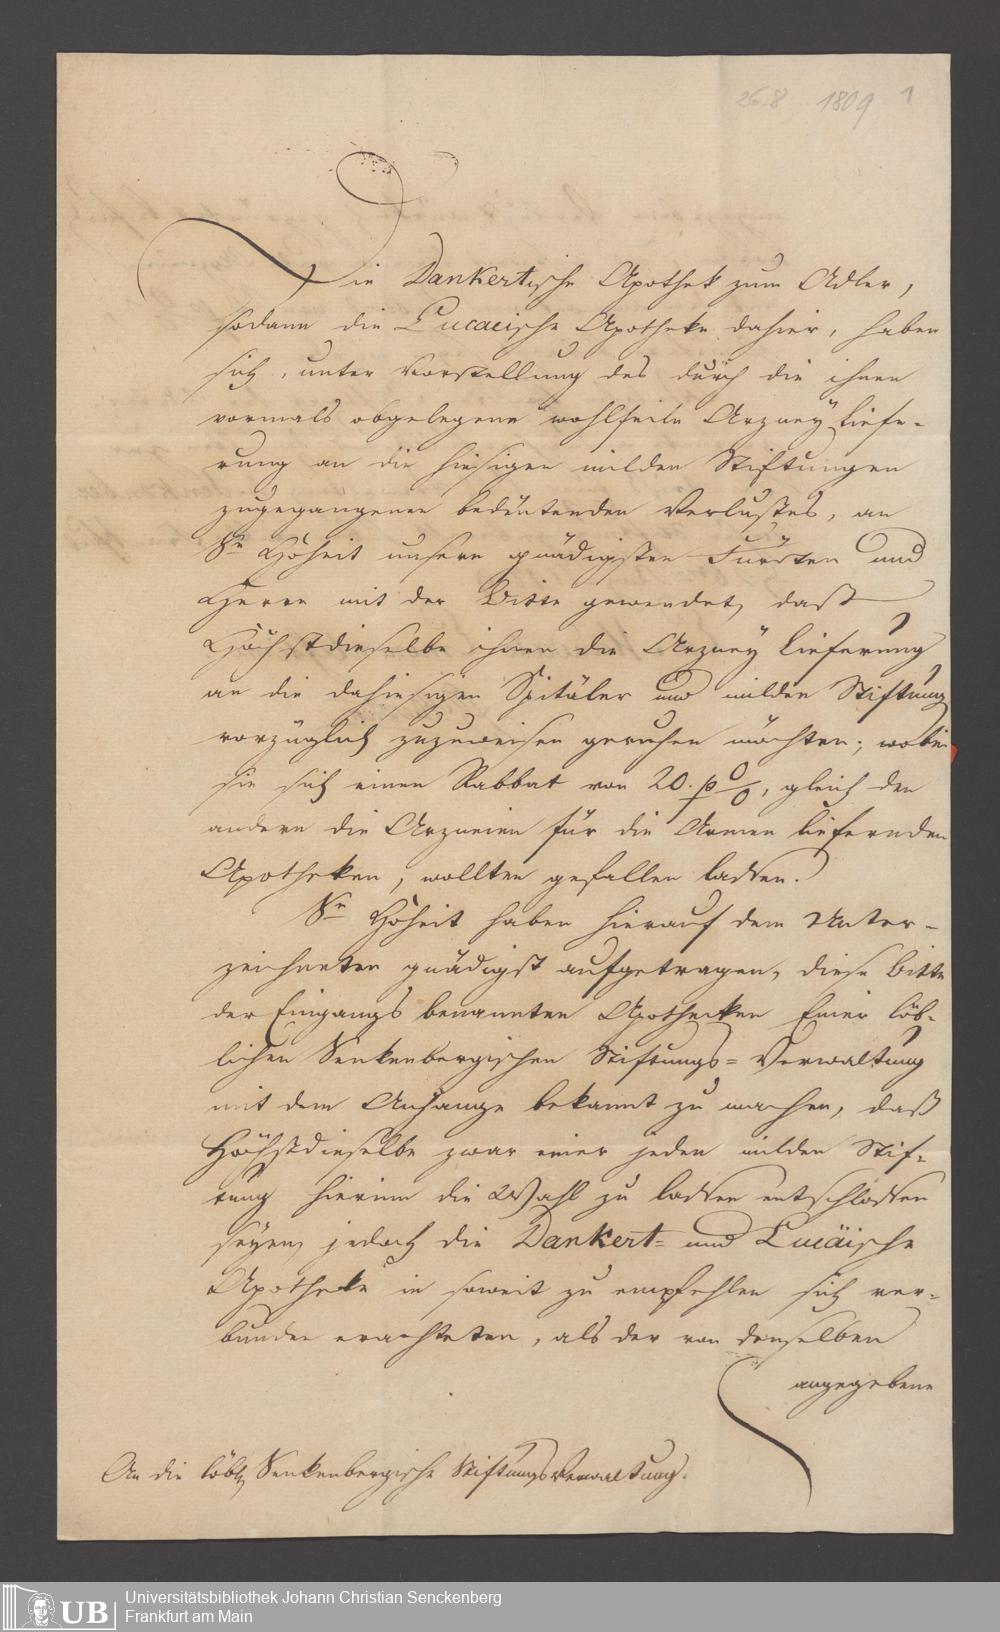 26.8 1809 1
Die Dankertische Apothek zum Adler,
sodann die Lucaeische Apotheke dahier, haben
sich, unter Vorstellung des durch die ihnen
vormals obgelegene wohlfeile Arzney Liefe-
rung an die hiesigen milden Stiftungen
zugegangenen bedeutenden Verlustes, an
Se Hoheit unsern gnädigsten Fürsten und
Herrn mit der Bitte gewendet, dass
Höchstdieselbe ihnen die Arzney Lieferung
an die dahiesigen Spitäler und milden Stiftung
vorzüglich zuzuweisen geruhen möchten; wobei
sie sich einen Rabbat von 20. p%, gleich den
andern die Arzneien für die Armen liefernden
Apotheken, wollten gefallen lassen.
Se Hoheit haben hierauf dem Unter-
zeichneten gnädigst aufgetragen, diese Bitte
der Eingangs benannten Apotheken Einer löb-
lichen Senkenbergischen Stiftungs=Verwaltung
mit dem Anhange bekannt zu machen, daß
Höchstdieselbe zwar einer jeden milden Stif-
tung hierinn die Wahl zu lassen entschlossen
seyen, jedoch die Dankert= und Lucäische
Apotheke in soweit zu empfehlen sich ver-
bunden erachteten, als der von denselben
angegebene
An die löbl. Senkenbergische Stiftungs Verwaltung.
UB
Universitätsbibliothek Johann Christian Senckenberg
Frankfurt am Main